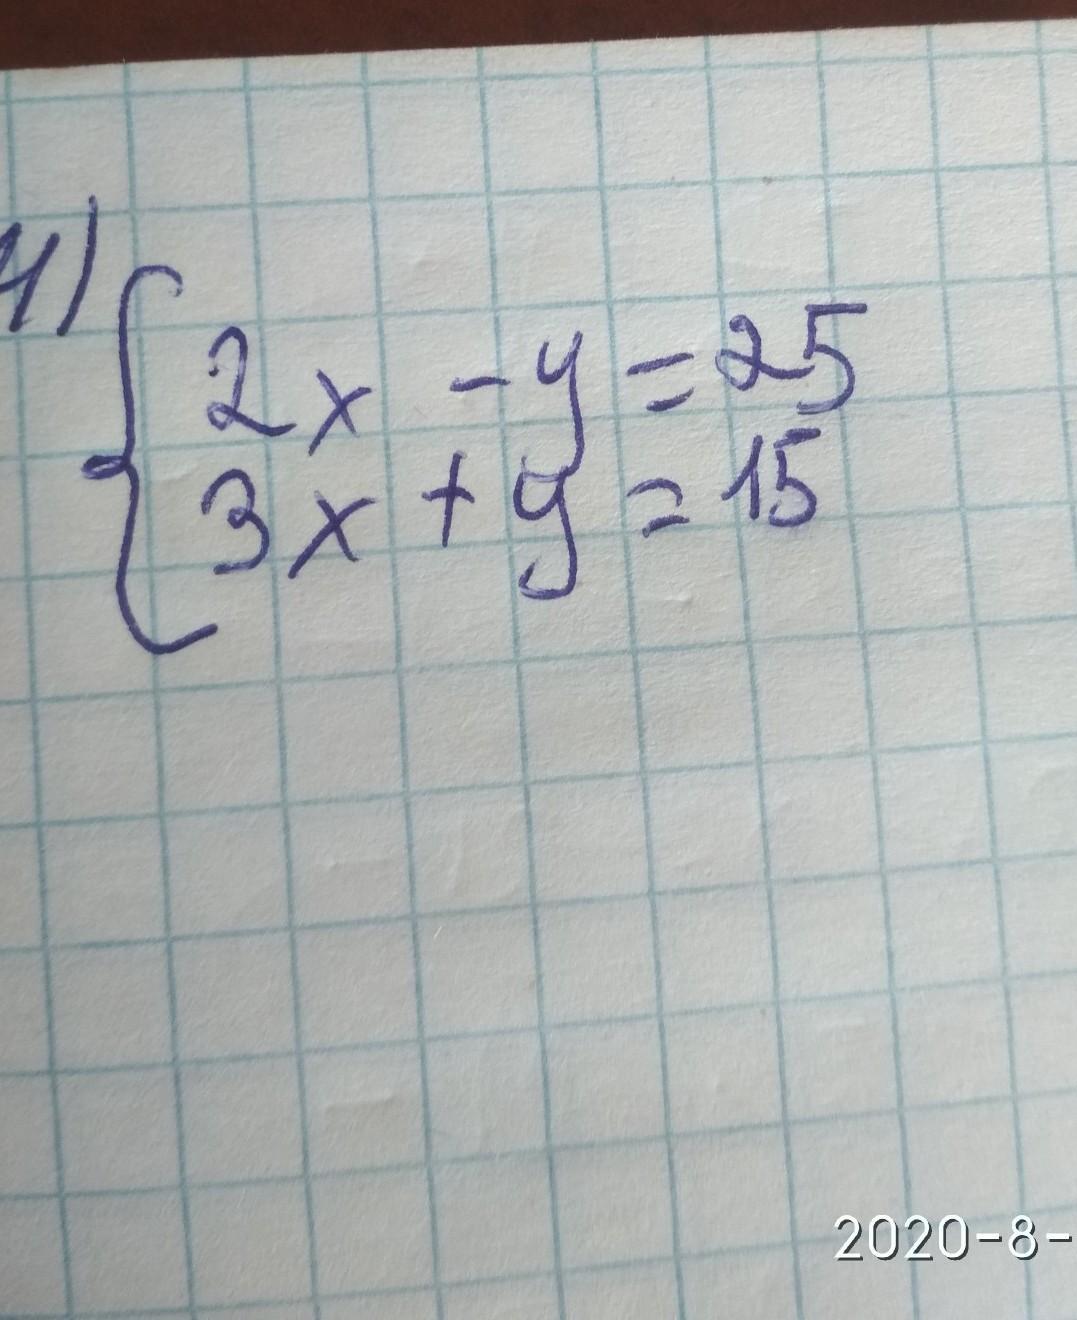 4)
2x - y = 25
3x + y = 15
2020-8-